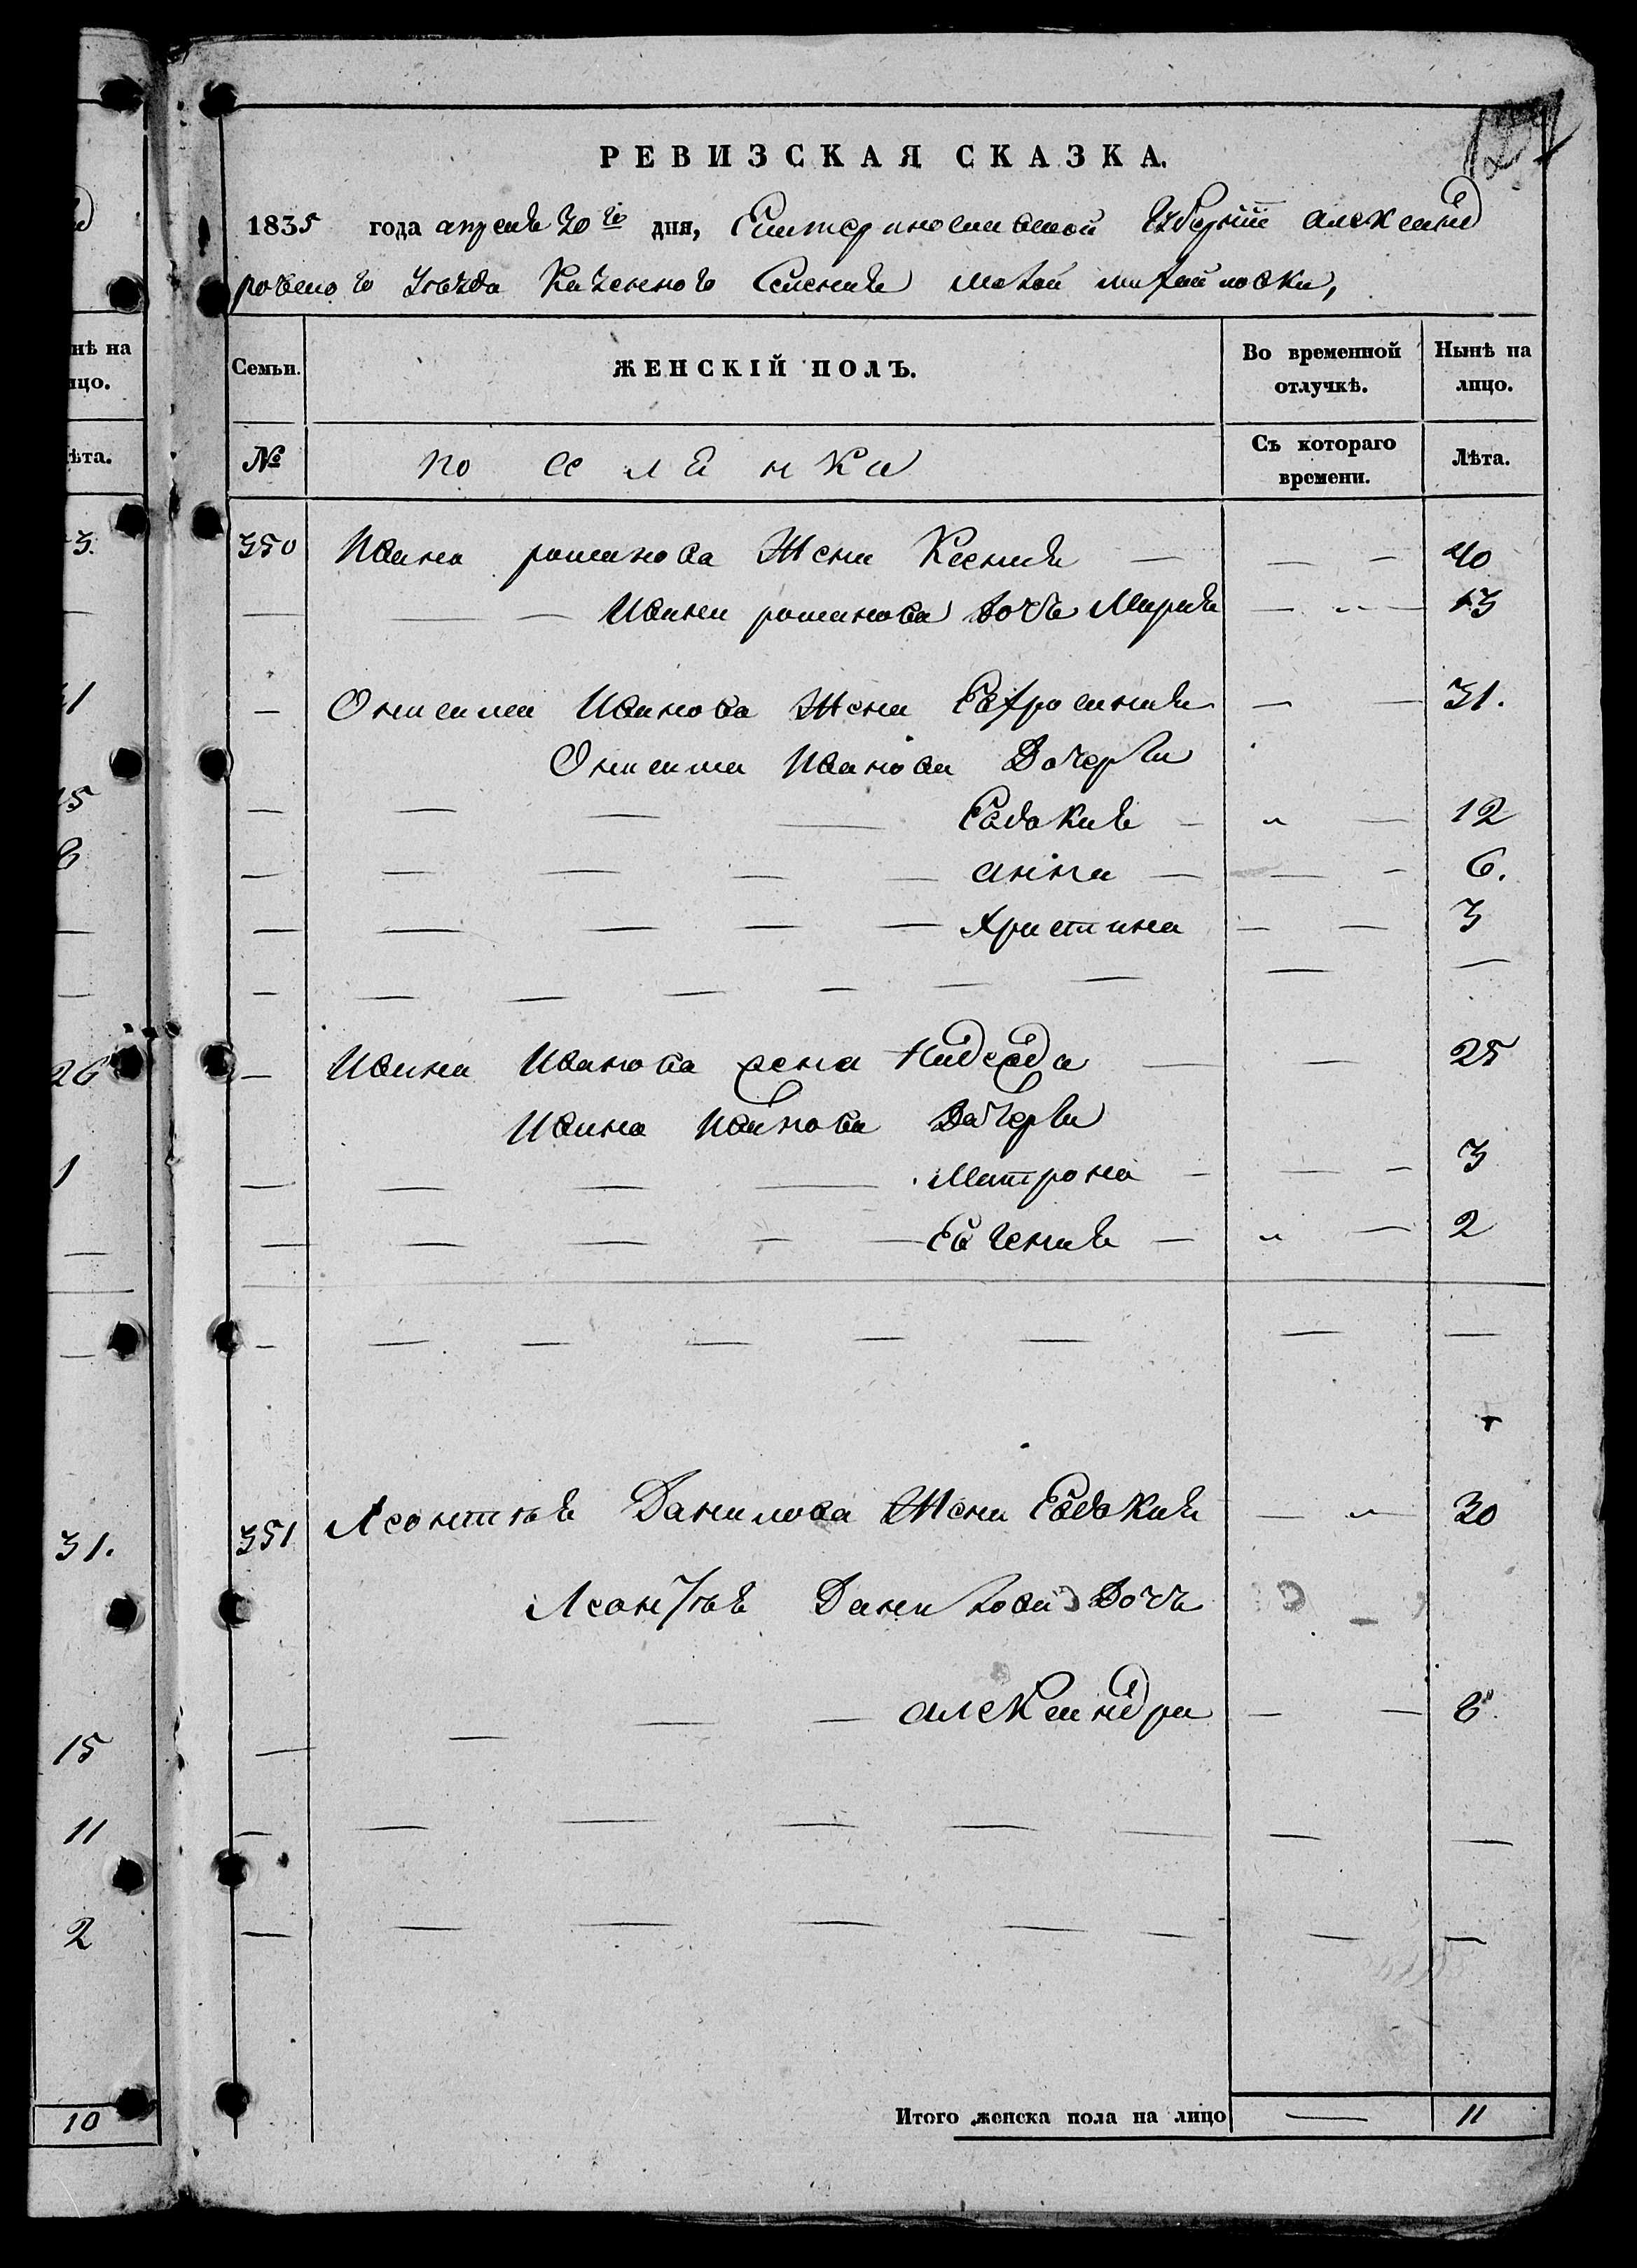 РЕВИЗСКАЯ СКАЗКА.
1835 года апреля 30го дня, Екатеринославской Губерніи александ
ровского Уезда Казенного Селения малой михайловки,
нѣ на
ицо.
Семьи.
ЖЕНСКІЙ ПОЛЪ.
Во временной отлучкѣ.
Нынѣ на лицо.
ѣта.
№
поселянки
Съ котораго времени.
Лѣта.
350 Ивана романова Жена Ксения — — — 40
— — — Ивана романова дочь Мария — „ — 13
— Онисима Иванова Жена Евфросиния — — 31.
Онисима Иванова Дочери
— — — — Евдокия — „ — 12
— — — — — анна — — — 6.
— — — — — Христина — — 3
— — — — — — — — —
— Ивана Иванова жена Надежда — — 25
Ивана Иванова Дочери
— — — — Матрона — — — 3
— — — — — Евгения — „ — 2
— — — — — — — —
351 Леонтия Данилова Жена Евдокия — „ 30
Леонтия Данилова Дочь —
— — — — александра — — 8.
— — — — — — — —
— — — — — — — —
Итого женска пола на лицо — 11
3.
1
15
6
26
1
31.
15
11
2
10